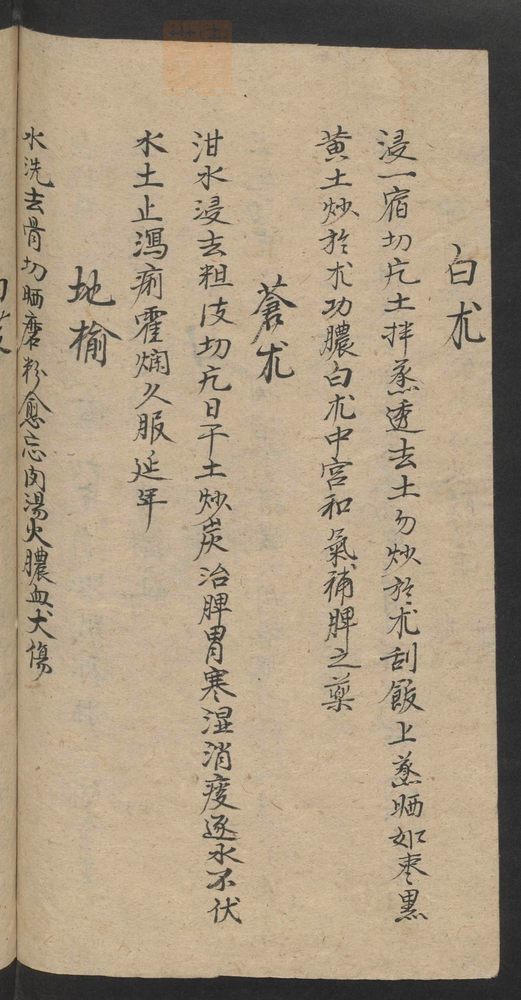 白朮
浸一宿切片土拌蒸透去土勿炒於朮刮飯上蒸晒如棗黑
黃土炒於朮功膿白朮中宮和氣補脾之藥
蒼朮
泔水浸去粗皮切片日干土炒炭治脾胃寒湿消痰逐水不伏
水土止瀉痢霍烟久服延年
地榆
水洗去骨切晒磨粉愈忘肉湯火膿血犬傷